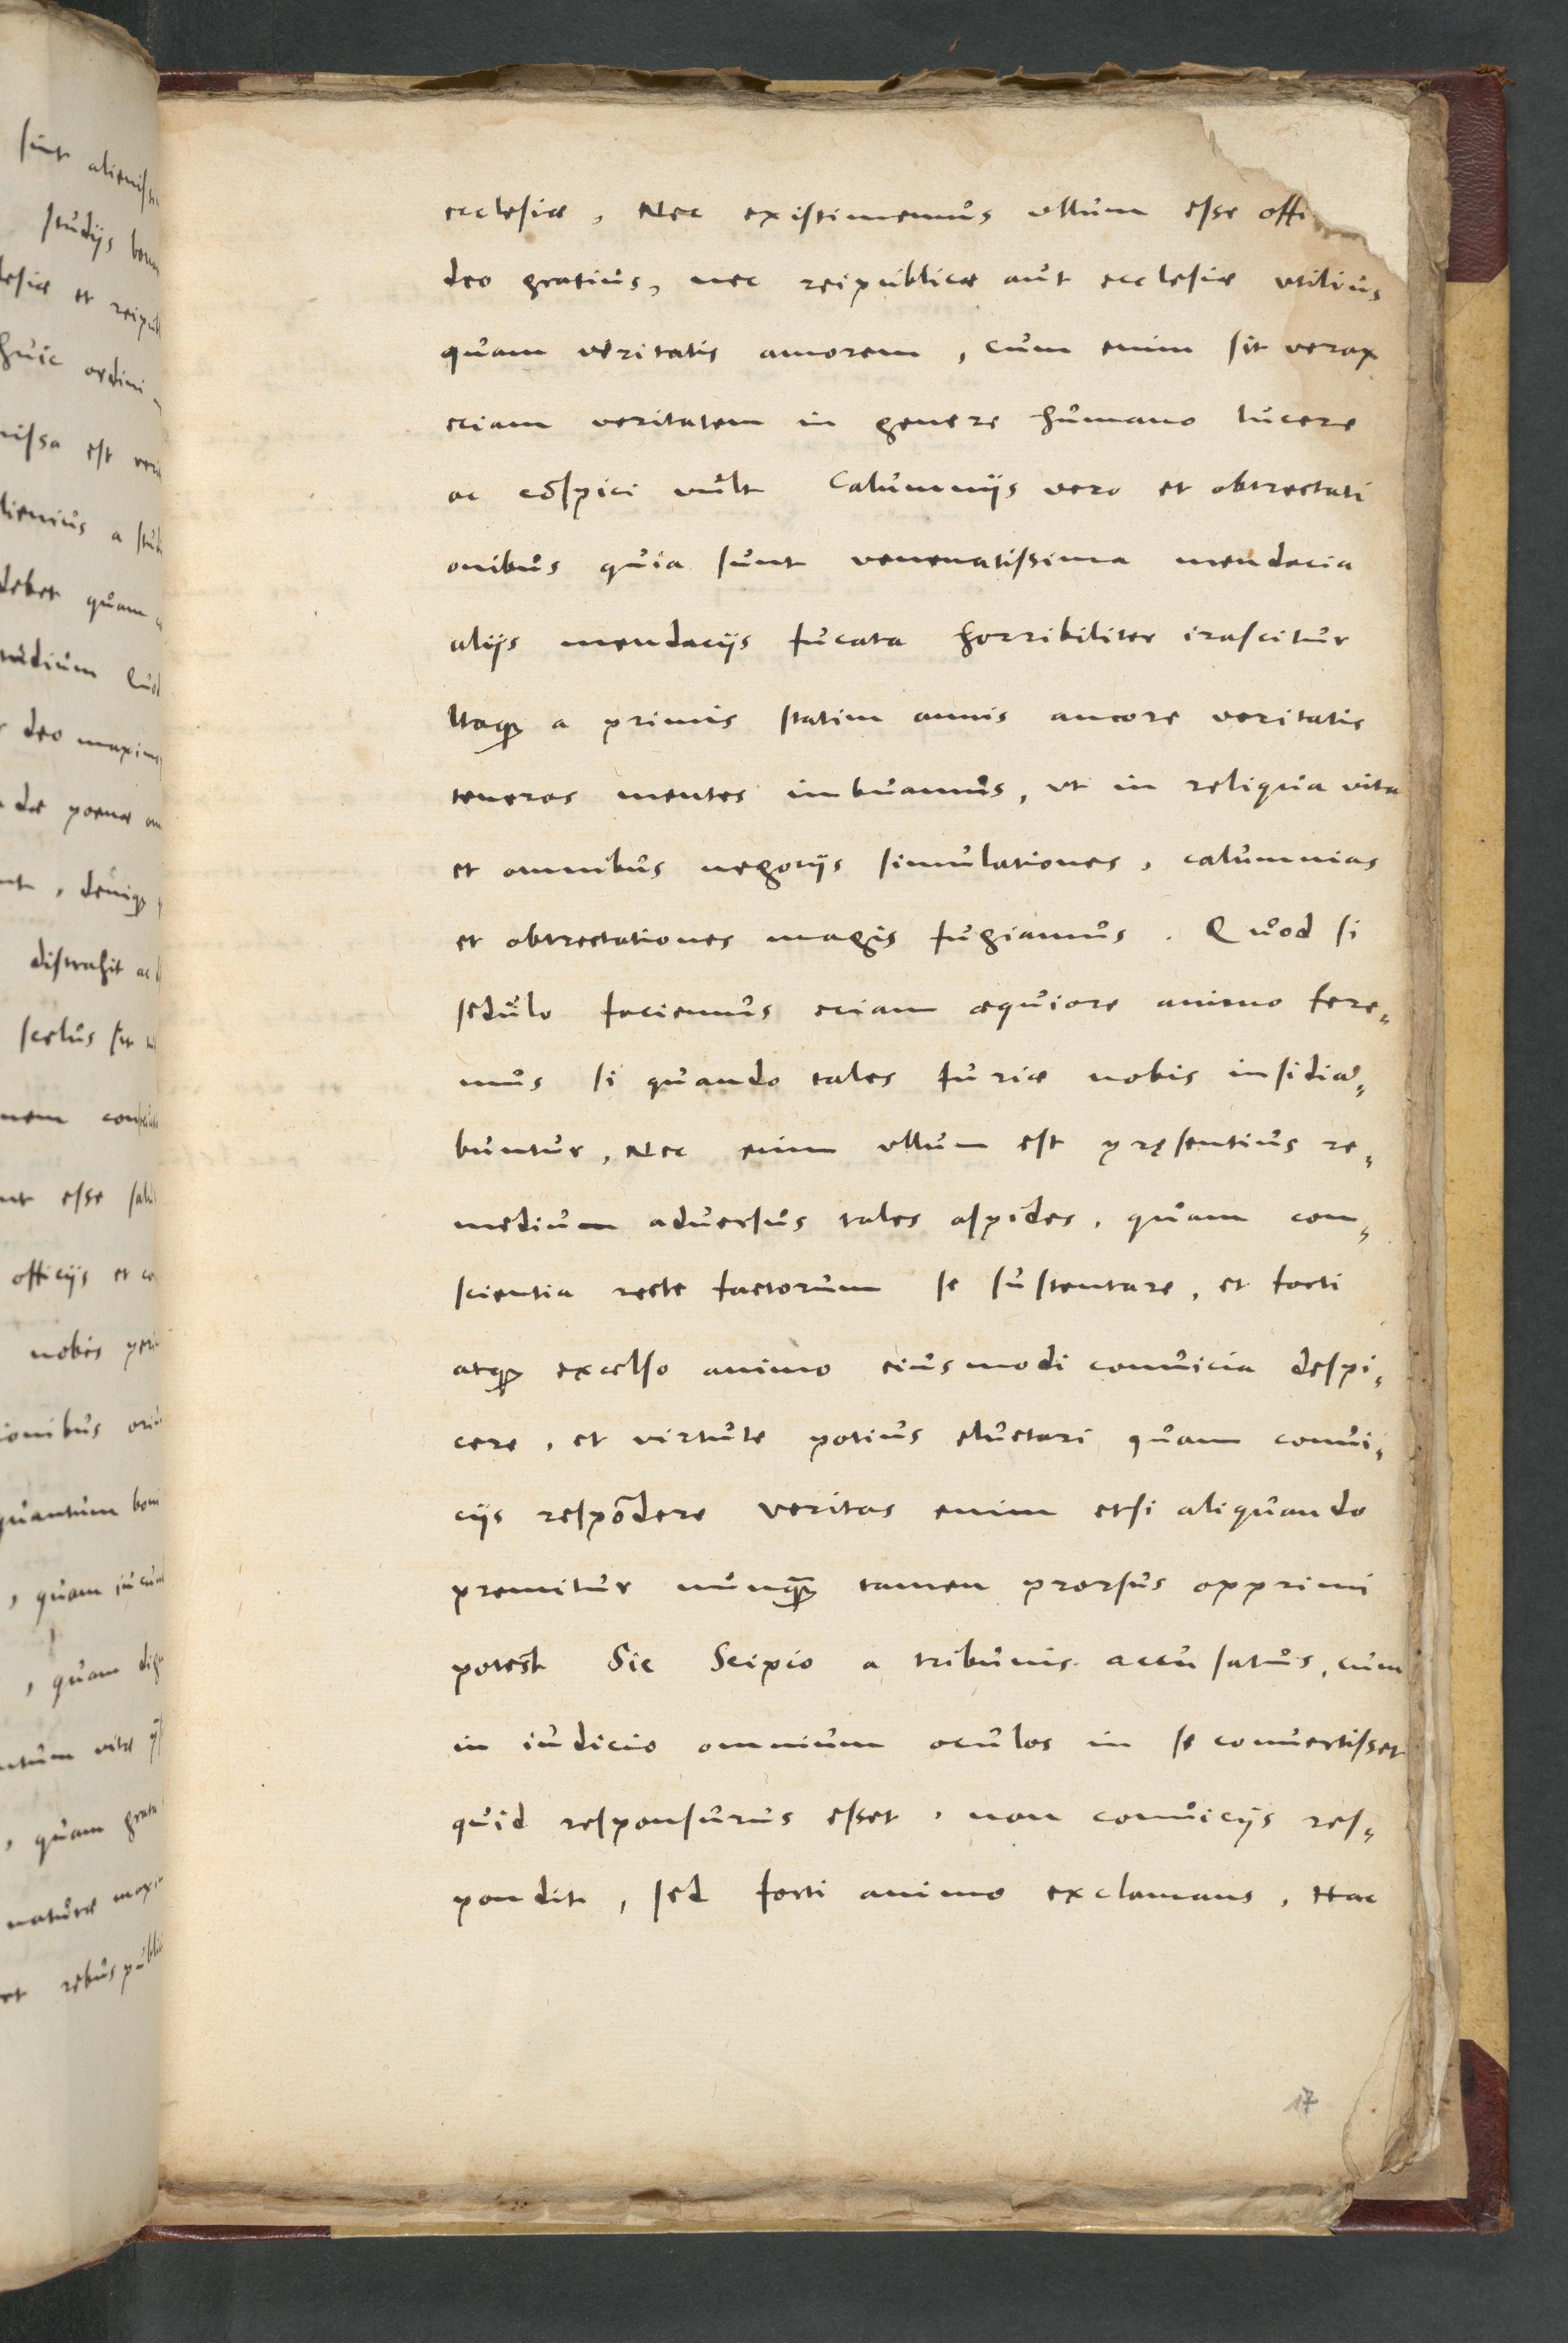 ecclesiæ, Nec existimemus ullum esse offi
deo gratius, nec reipublicæ aut ecclesiæ utilius
quam veritatis amorem, cum enim sit verax
eciam veritatem in genere humano lucere
ac cōspici vult Calumniĳs vero et obtrectati
onibus quia sunt venenatissima mendacia
aliĳs mendaciĳs fucata horribiliter irascitur
Itaqꝫ a primis statim annis amore veritatis
teneras mentes imbuamus, ut in reliqua vita
et omnibus negociĳs simulationes, calumnias
et obtrectationes magis fugiamus. Quod si
sedulo faciemus eciam æquiore animo fere-
mus si quando tales furiæ nobis insidia-
buntur, Nec enim ullum est pręsentius re-
medium adversus tales aspides, quam con-
scientia recte factorum se sustentare, et forti
atqꝫ excelso animo eiusmodi convicia despi-
cere, et virtute potius eluctari quam convi-
ciĳs respōdere veritas enim etsi aliquando
premitur nunqꝫ̄ tamen prorsus opprimi
potest Sic Scipio a tribunis accusatus, cum
in iudicio omnium oculos in se convertisset
quid responsurus esset, non conviciĳs res-
pondit, sed forti animo exclamans, Hac
17
sint
studĳs
et
huic ordini
est
a
debet quam
deo
poenæ
, deniqꝫ
distrahit ac
scelus sit
esse
officiĳs et
nobis
quantum
, quam
, quam
vitæ
, quam
naturæ